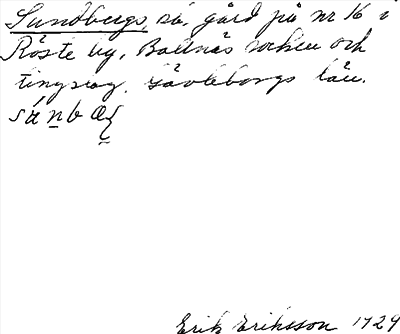 Sundbergs, sä. gård på nr 16 i
Röste by, Bollnäs socken och
tingslag, Gävleborgs län.
Erik Eriksson 1929